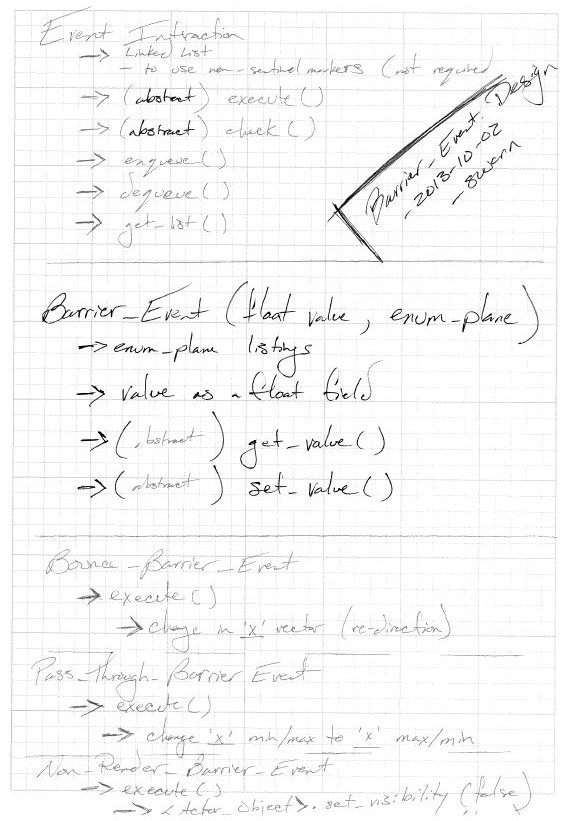 Event Interaction
→ Linked List
- to use non-sentinel markers (not required
→ (abstract) execute()
→ (abstract) check()
→ enqueue()
→ dequeue()
→ get_list()
Barrier_Event Design
- 2013-10-02
Barrier_Event (float value, enum_plane)
→ enum_plane listings
→ value as a float field
→ (abstract) get_value()
→ (abstract) set_value()
Bounce_Barrier_Event
→ execute()
→ change in 'x' vector (re-direction)
Pass_Through_Barrier Event
→ execute()
→ change 'x' min/max to 'x' max/min
Non_Render_Barrier_Event
→ execute()
→ <Actor_Object>.set_visibility(false)